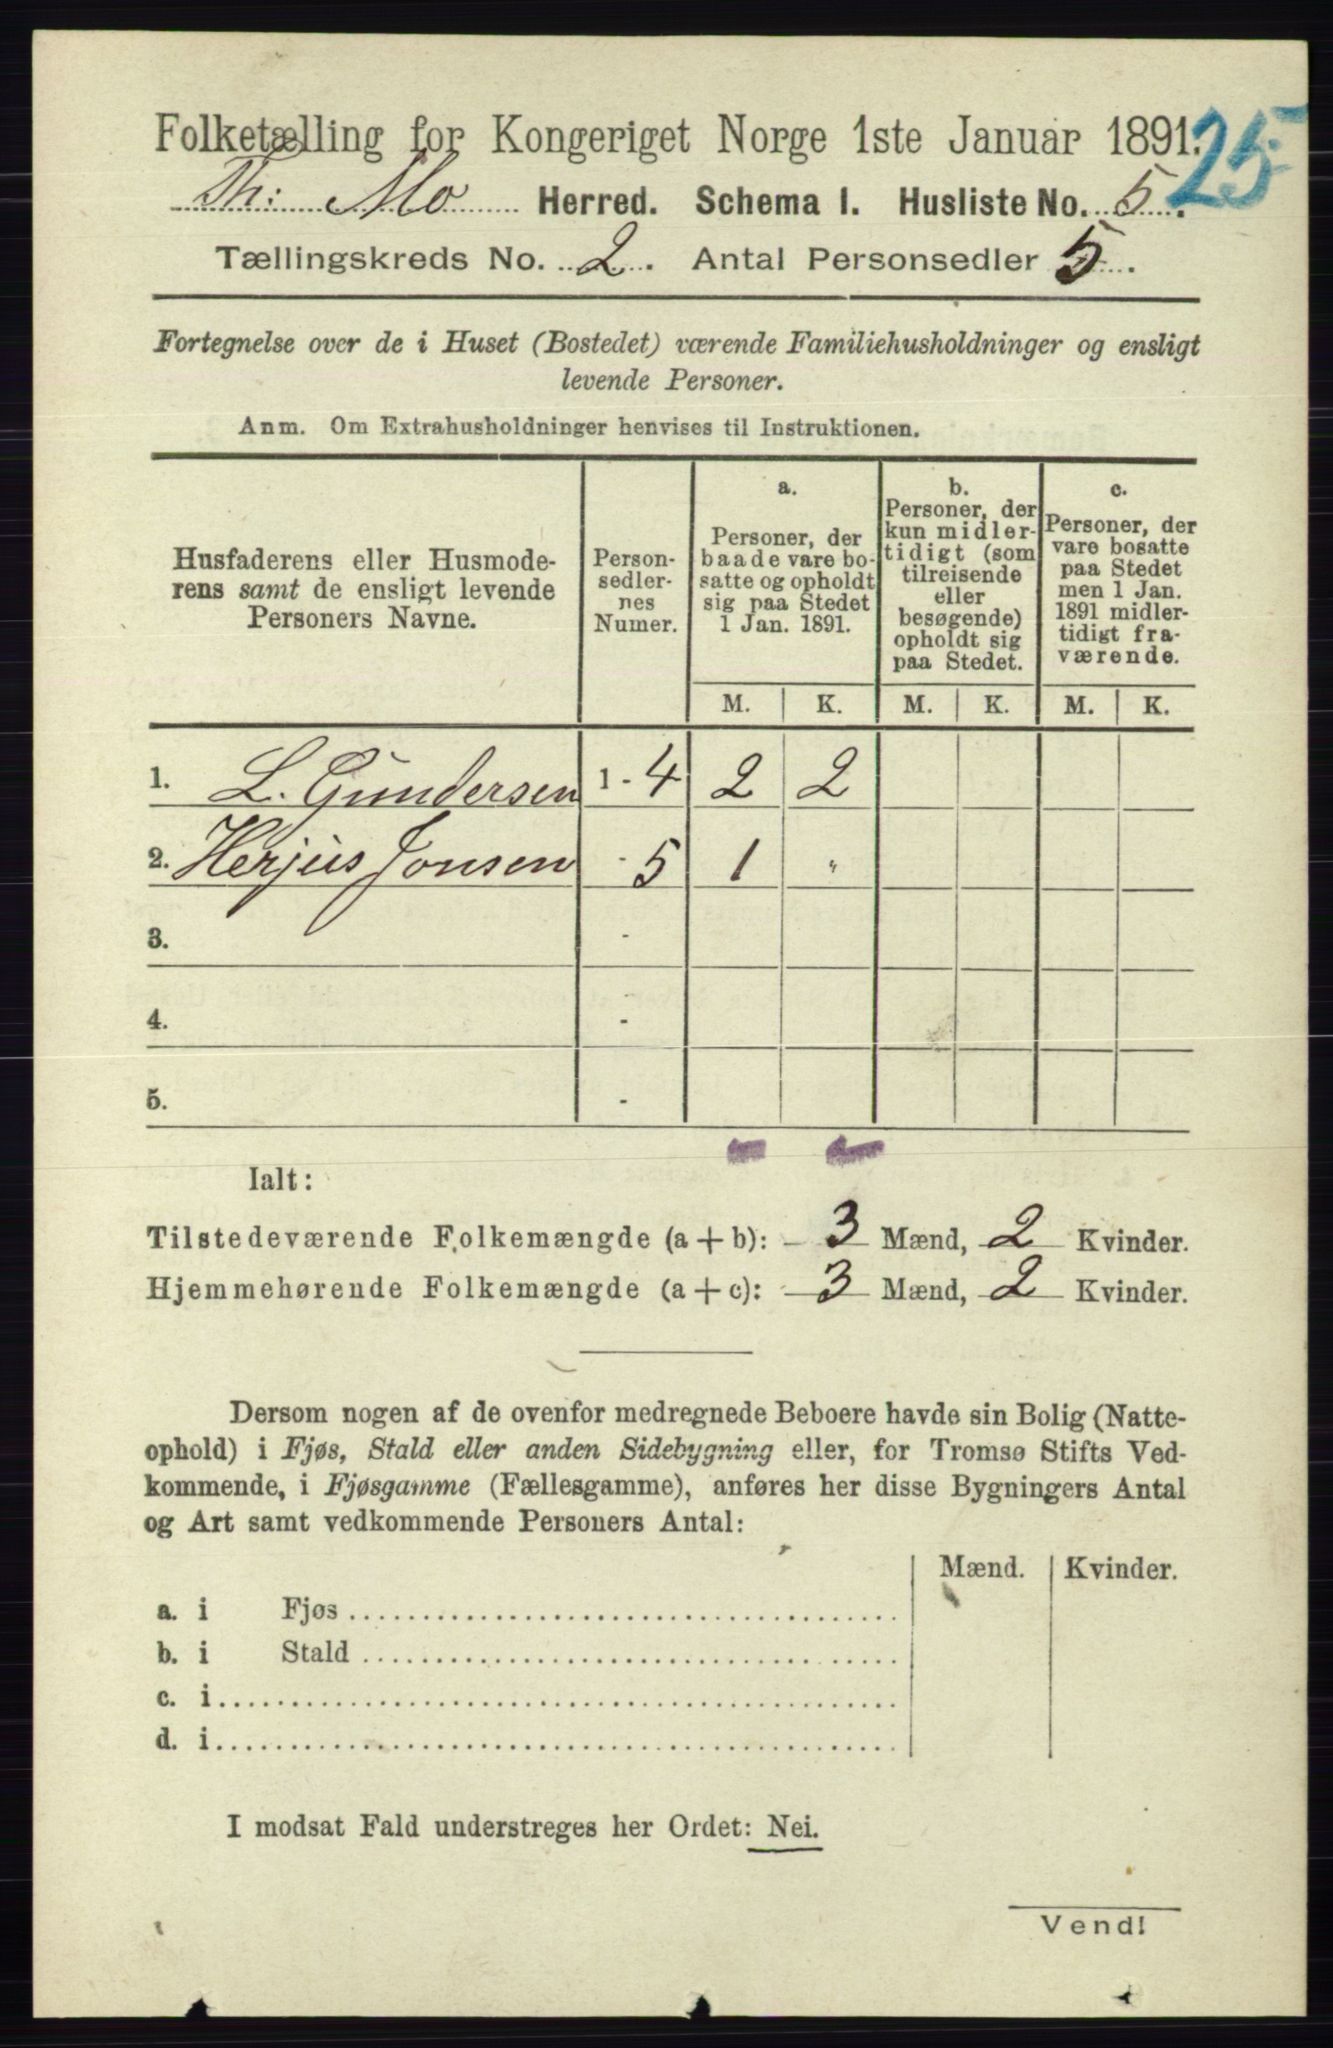 Folketælling for Kongeriget Norge 1ste Januar 1891.
25
Th: Mo Herred. Schema I. Husliste No. 5.
Tællingskreds No. 2. Antal Personsedler 5.
Fortegnelse over de i Huset (Bostedet) værende Familiehusholdninger og ensligt
levende Personer.
Anm. Om Extrahusholdninger henvises til Instruktionen.
Husfaderens eller Husmode-
rens samt de ensligt levende
Personers Navne.
Person-
sedler-
nes
Numer.
a.
Personer, der
baade vare bo-
satte og opholdt
sig paa Stedet
1 Jan. 1891.
b.
Personer, der
kun midler-
tidigt (som
tilreisende
eller
besøgende)
opholdt sig
paa Stedet.
c.
Personer, der
vare bosatte
paa Stedet
men 1 Jan.
1891 midler-
tidigt fra-
værende.
M. K. M. K. M. K.
1. L. Gundersen 1 - 4 2 2
2. Herjus Jonsen - 5 1 "
3. -
4. -
5. -
Ialt:
Tilstedeværende Folkemængde (a + b): 3 Mænd, 2 Kvinder.
Hjemmehørende Folkemængde (a + c): 3 Mænd, 2 Kvinder.
Dersom nogen af de ovenfor medregnede Beboere havde sin Bolig (Natte-
ophold) i Fjøs, Stald eller anden Sidebygning eller, for Tromsø Stifts Ved-
kommende, i Fjøsgamme (Fællesgamme), anføres her disse Bygningers Antal
og Art samt vedkommende Personers Antal:
Mænd. Kvinder.
a. i Fjøs
b. i Stald
c. i
d. i
I modsat Fald understreges her Ordet: Nei.
Vend!